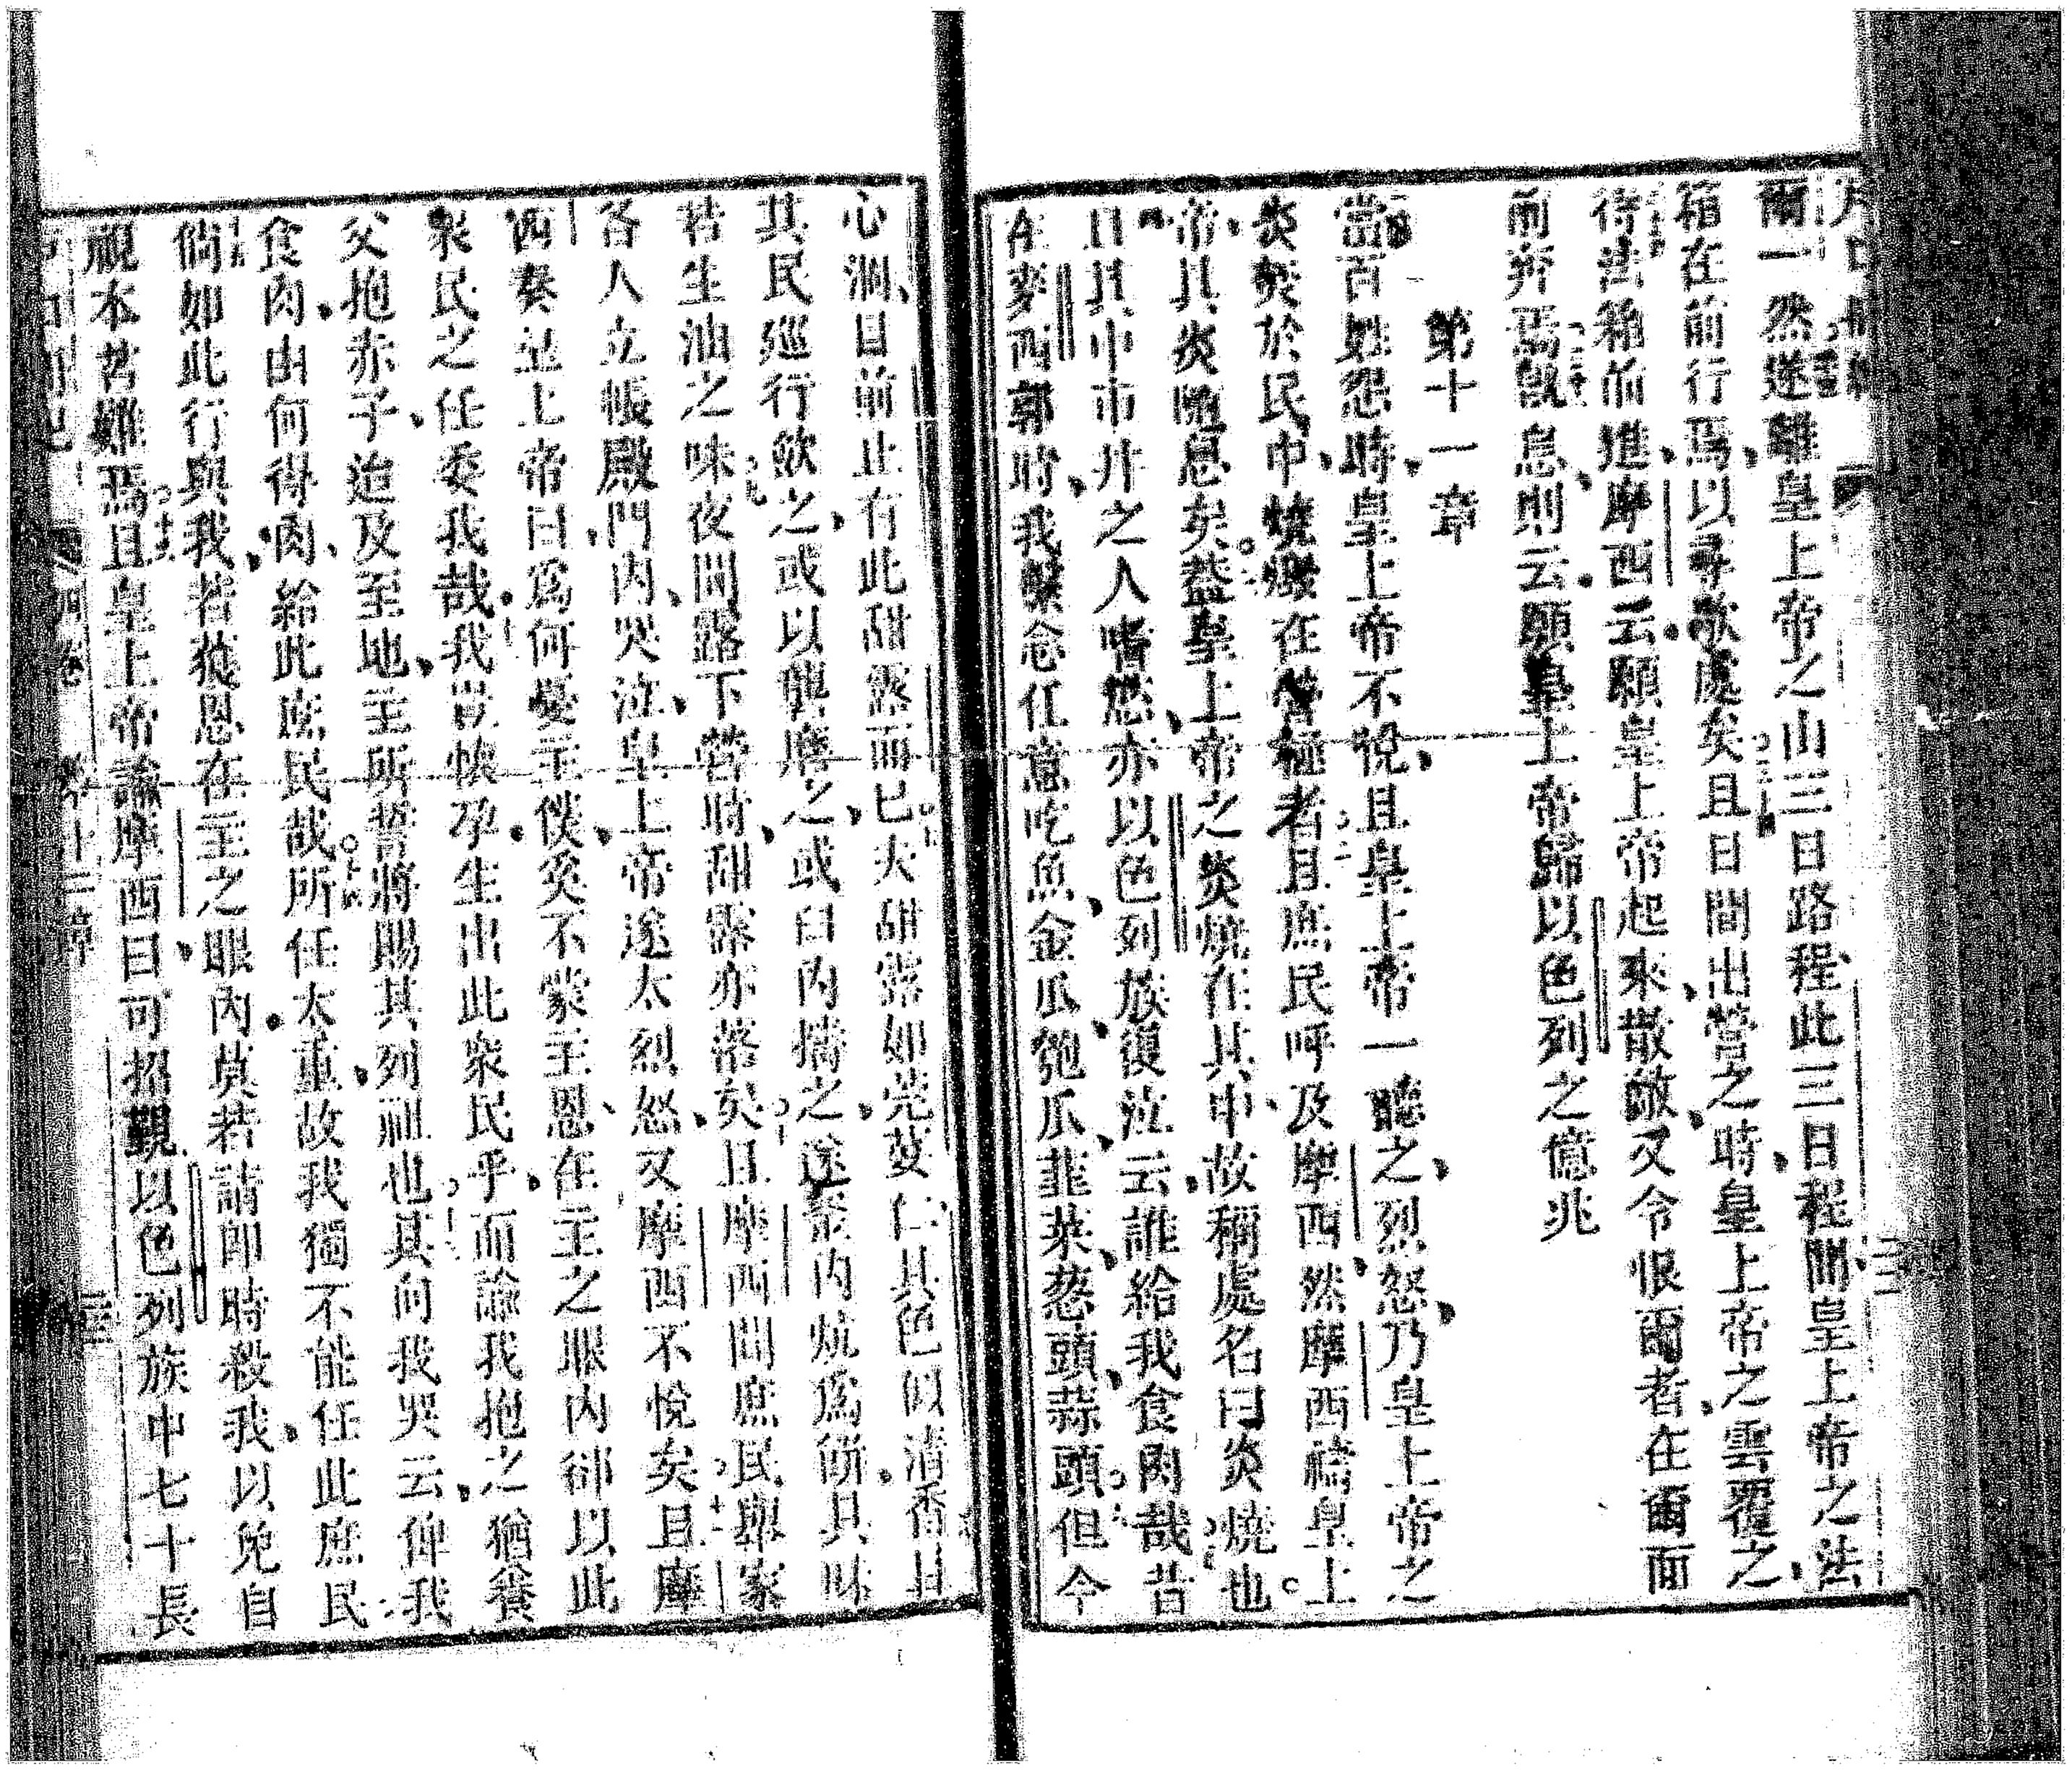 爾一然遂離皇上帝之山三日路程此三日程間皇上帝之法
箱在前行焉以尋歇處矣且日間出營之時皇上帝之雲覆之
待法箱前進摩西云願皇上帝起來散敵又令恨爾者在爾面
前奔焉旣息則云願皇上帝歸以色列之億兆
第十一章
當百姓怨時皇上帝不悅且皇上帝一聽之烈怒乃皇上帝之
炎焚於民中燒燬在營極者且庶民呼及摩西然摩西禱皇上
帝其炎隨息矣蓋皇上帝之炎燒在其中故稱處名曰炎燒也
且其中市井之人嗜慾亦以色列族復泣云誰給我食肉哉昔
在麥西郭時我繫念任意吃魚金瓜匏瓜韮菜葱頭蒜頭但今
心涸目前止有此甜露而已夫甜露如芫荽仁其色似清香且
其民廵行歛之或以磨之或臼內擣之遂窰內炕爲餅其味
若生油之味夜間露下營時甜露亦落矣且摩西聞庶民舉家
各人立帳殿門內哭泣皇上帝遂太烈怒又摩西不悅矣且摩
西奏皇上帝曰爲何憂主僕奚不蒙主恩在主之眼內卻以此
衆民之任委我哉我豈懷孕生出此衆民乎而諭我抱之猶養
父抱赤子迨及至地主所誓將賜其列祖也其向我哭云俾我
食肉由何得肉給此庶民哉所任太重故我獨不能任此庶民
倘如此行與我若獲恩在主之眼內莫若請卽時殺我以免自
視本苦難焉且皇上帝諭摩西曰可招覲以色列族中七十長